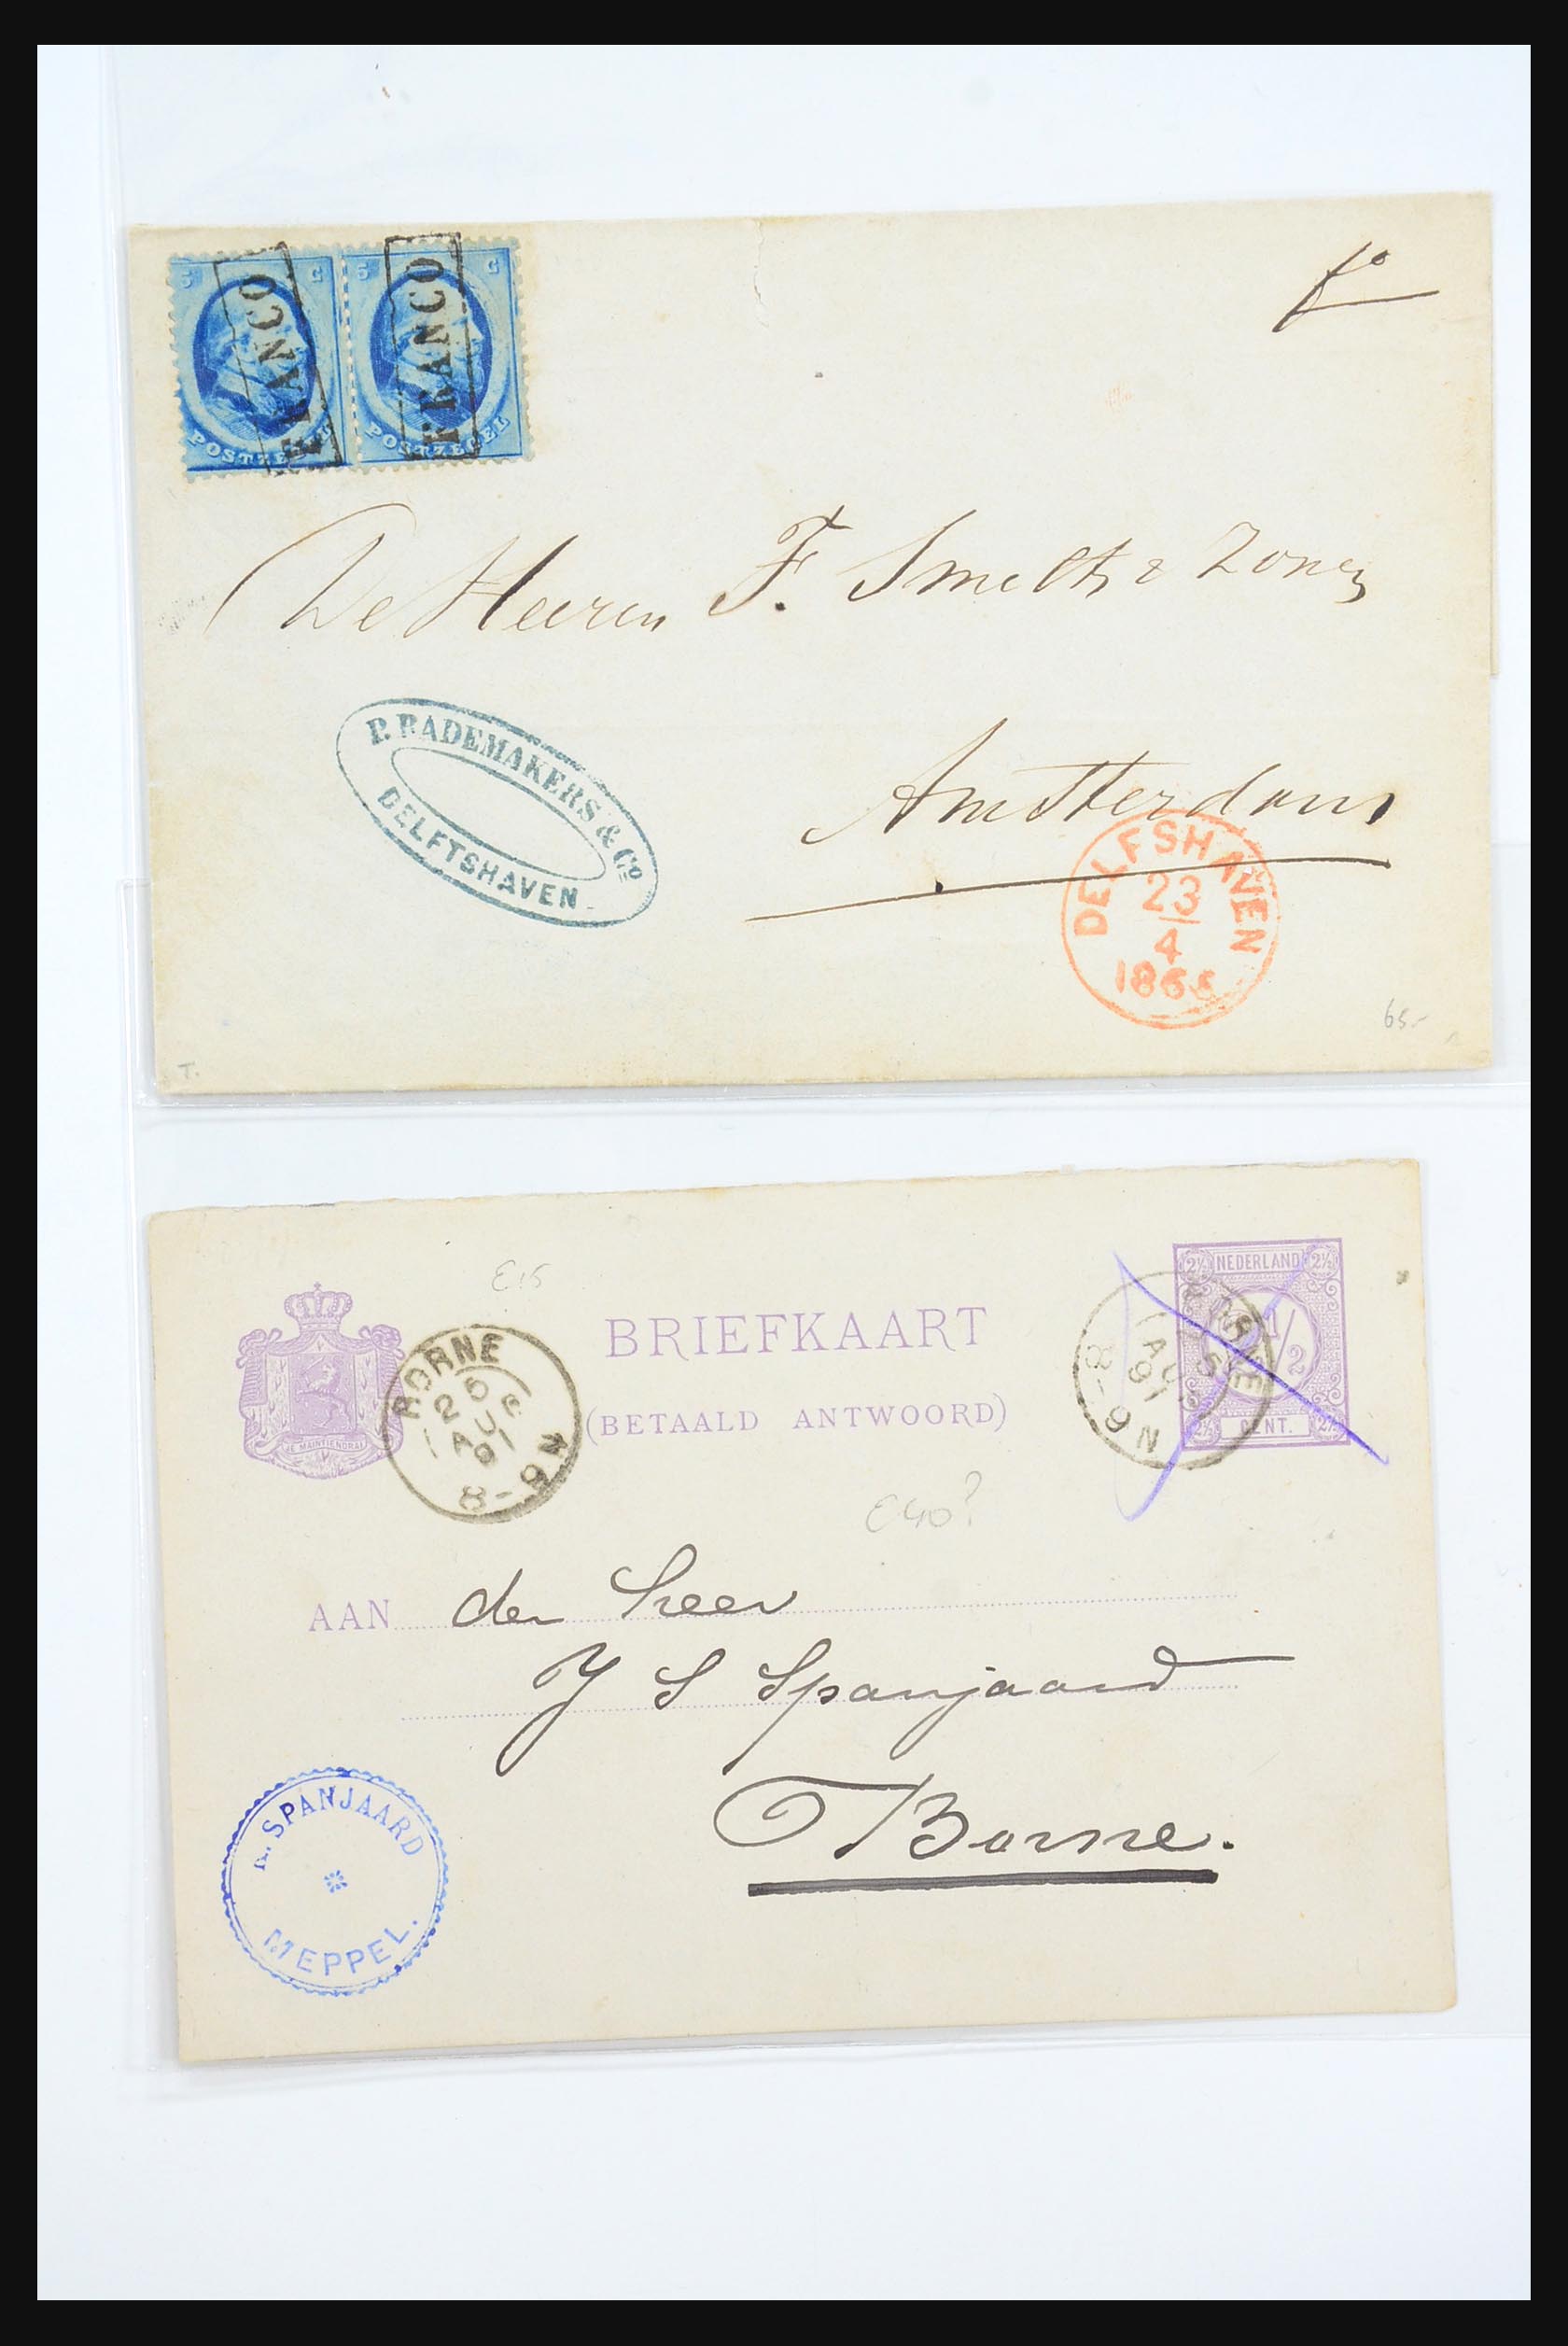 5 C 5 C
FRANCO FRANCO
POSTZEGEL POSTZEGEL
fo
De Heeren F. Smeth & Zonen
Amsterdam
P. RADEMAKERS & Co
DELFTSHAVEN
DELFSHAVEN
23
4
186
65.-
T.
E15
BRIEFKAART
(BETAALD ANTWOORD)
JE MAINTIENDRAI
BORNE
25
AUG
91
8-9N
2½ NEDERLAND 2½
2 1/2
2½ CENT. 2½
BORNE
25
AUG
91
8-9N
E40?
AAN den heer
J S Spanjaard
Borne.
SPANJAARD
MEPPEL.